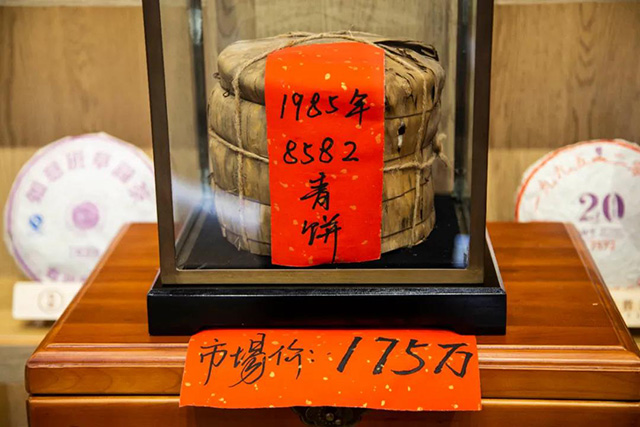 1985年
8582
青
饼
市場价:175万
20